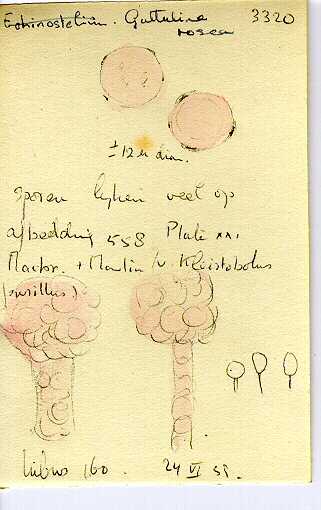 Echinostelium. Guttulina
rosea
3320
± 12 µ diam.
sporen lijken veel op
afbeelding 558 Plate XXI
Macbr. + Martin v. Kleistobolus
(pusillus)
160.
24 VI 58.